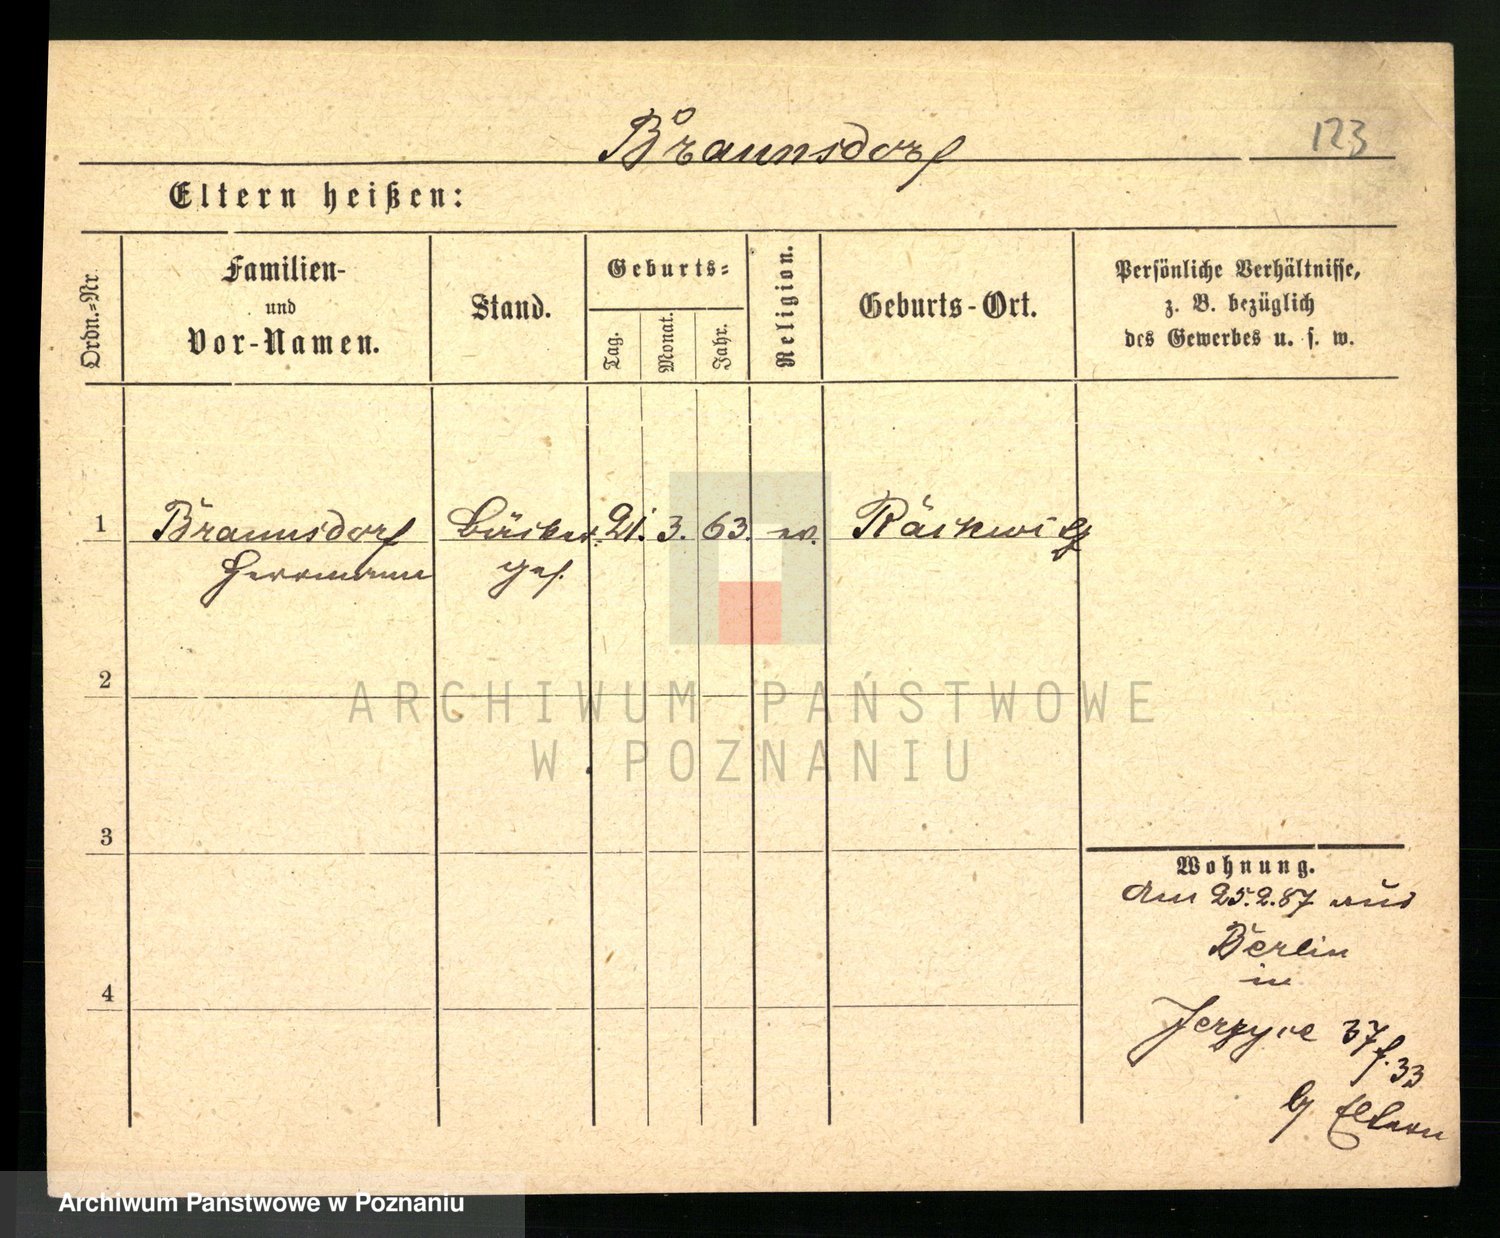 Braunsdorf 123
Eltern heißen:
Ordn.-Nr.
Familien-
und
Vor-Namen.
Stand.
Geburts-
Tag.
Monat.
Jahr.
Religion.
Geburts-Ort.
Persönliche Verhältnisse,
z. B. bezüglich
des Gewerbes u. s. w.
1 Braunsdorf Bäcker 21. 3. 63. ev. Räckwitz
Herrmann ges.
2
3
4
Wohnung.
Am 25.2.87 aus
Berlin
in
Jerzyce 37
f. 33
b/ Eltern
ARCHIWUM PAŃSTWOWE
W POZNANIU
Archiwum Państwowe w Poznaniu